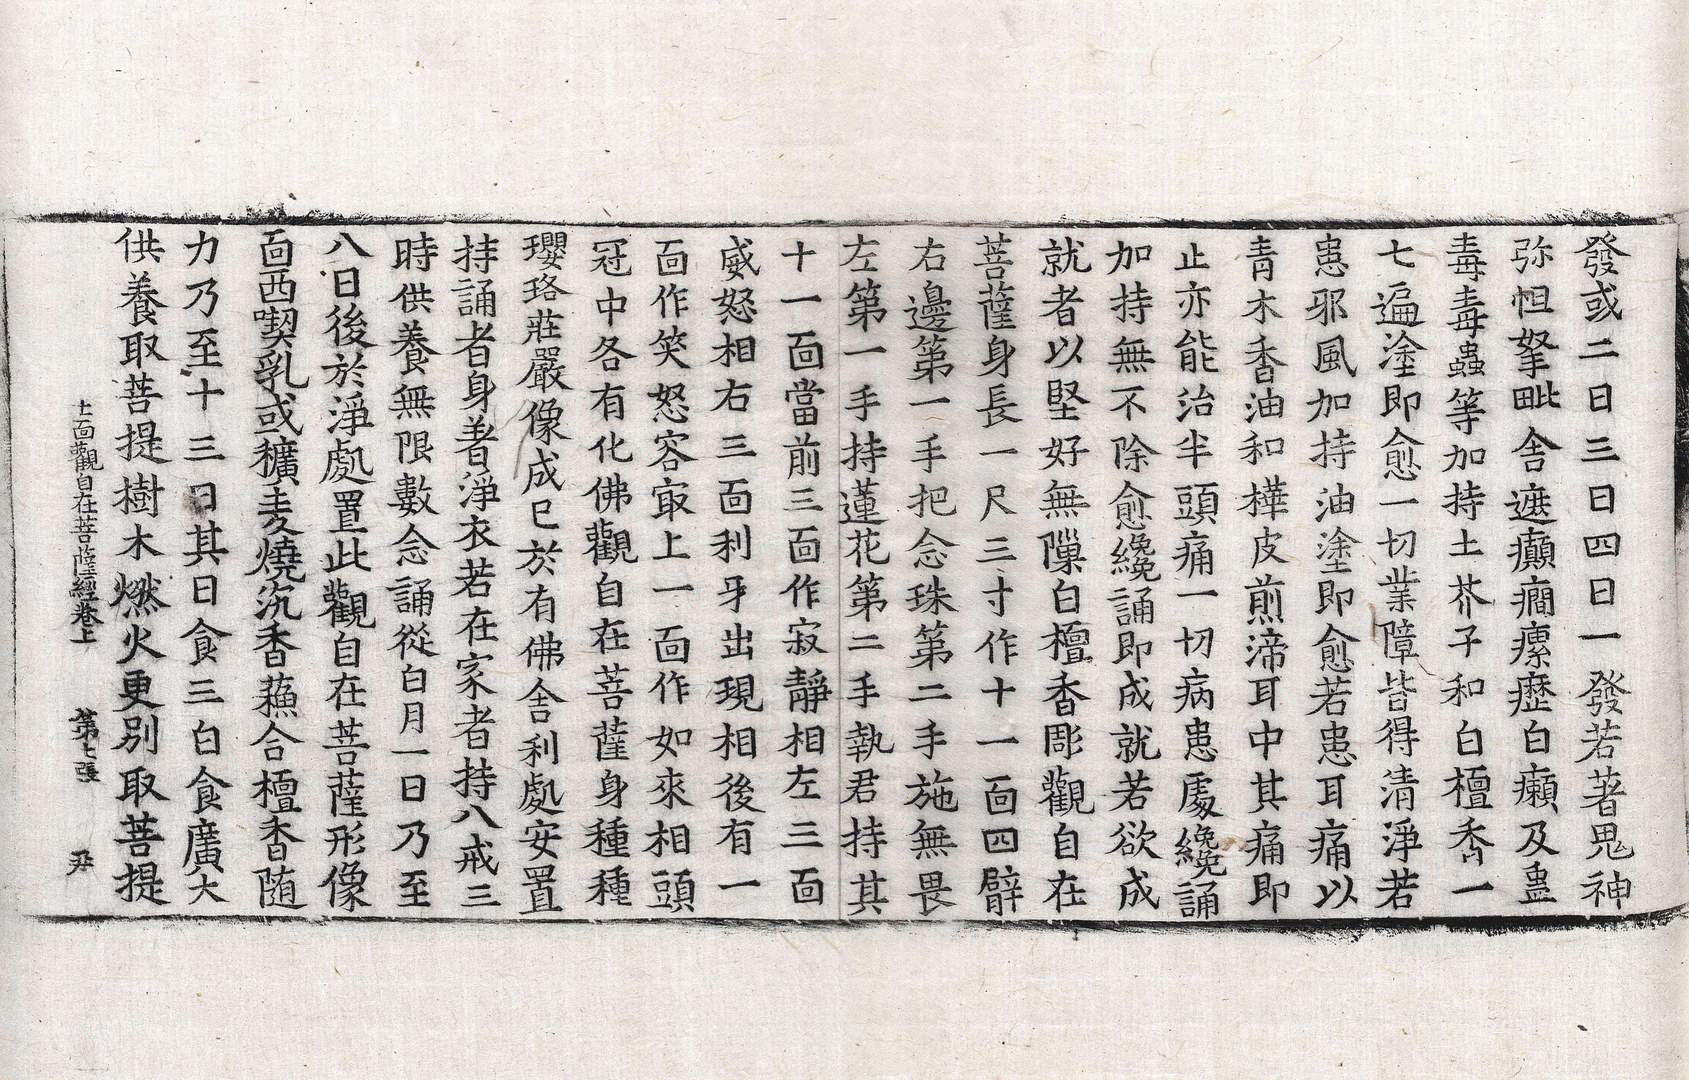 發或二日三日四日一發若著鬼神
弥怛拏毗舍遮癲癎瘰癧白癩及蠱
毒毒蟲等加持土芥子和白檀香一
七遍塗即愈一切業障皆得清淨若
患邪風加持油塗即愈若患耳痛以
青木香油和樺皮煎渧耳中其痛即
止亦能治半頭痛一切病患處纔誦
加持無不除愈纔誦即成就若欲成
就者以堅好無隟白檀香彫觀自在
菩薩身長一尺三寸作十一面四臂
右邊第一手把念珠第二手施無畏
左第一手持蓮花第二手執君持其
十一面當前三面作寂靜相左三面
威怒相右三面利牙出現相後有一
面作笑怒容㝡上一面作如來相頭
冠中各有化佛觀自在菩薩身種種
瓔珞莊嚴像成已於有佛舍利處安置
持誦者身著淨衣若在家者持八戒三
時供養無限數念誦從白月一日乃至
八日後於淨處置此觀自在菩薩形像
面西喫乳或穬麦燒沉香蘓合檀香随
力乃至十三日其日食三白食廣大
供養取菩提樹木燃火更別取菩提
十一面觀自在菩薩經卷上 第七張